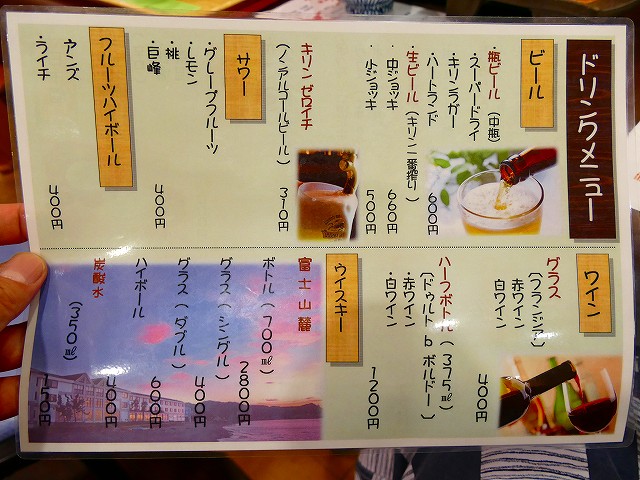 ドリンクメニュー
ビール
・瓶ビール(中瓶)
・スーパードライ
・キリンラガー
・ハートランド
600円
・生ビール(キリン一番搾り)
・中ジョッキ
660円
・小ジョッキ
500円
キリン ゼロイチ
(ノンアルコールビール)
310円
サワー
・グレープフルーツ
・レモン
・桃
・巨峰
400円
フルーツハイボール
アンズ
・ライチ
400円
ワイン
グラス
(フランジア)
赤ワイン
白ワイン
400円
ハーフボトル(375㎖)
(ドゥルト b ボルドー)
・赤ワイン
・白ワイン
1200円
ウイスキー
富士山麓
ボトル(700㎖)
2800円
グラス(シングル)
400円
グラス(ダブル)
600円
ハイボール
400円
炭酸水
(350㎖)
150円